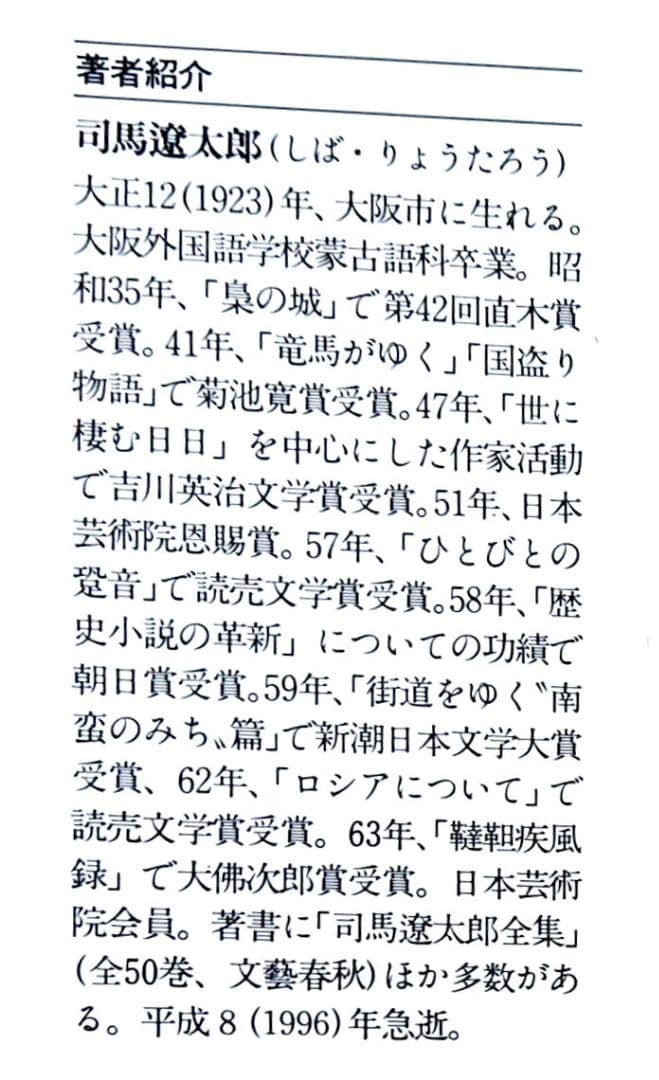 著者紹介
司馬遼太郎(しば・りょうたろう)
大正12(1923)年、大阪市に生れる。
大阪外国語学校蒙古語科卒業。昭
和35年、「梟の城」で第42回直木賞
受賞。41年、「竜馬がゆく」「国盗り
物語」で菊池寛賞受賞。47年、「世に
棲む日日」を中心にした作家活動
で吉川英治文学賞受賞。51年、日本
芸術院恩賜賞。57年、「ひとびとの
跫音」で読売文学賞受賞。58年、「歴
史小説の革新」についての功績で
朝日賞受賞。59年、「街道をゆく〝南
蛮のみち〟篇」で新潮日本文学大賞
受賞、62年、「ロシアについて」で
読売文学賞受賞。63年、「韃靼疾風
録」で大佛次郎賞受賞。日本芸術
院会員。著書に「司馬遼太郎全集」
(全50巻、文藝春秋)ほか多数があ
る。平成8(1996)年急逝。